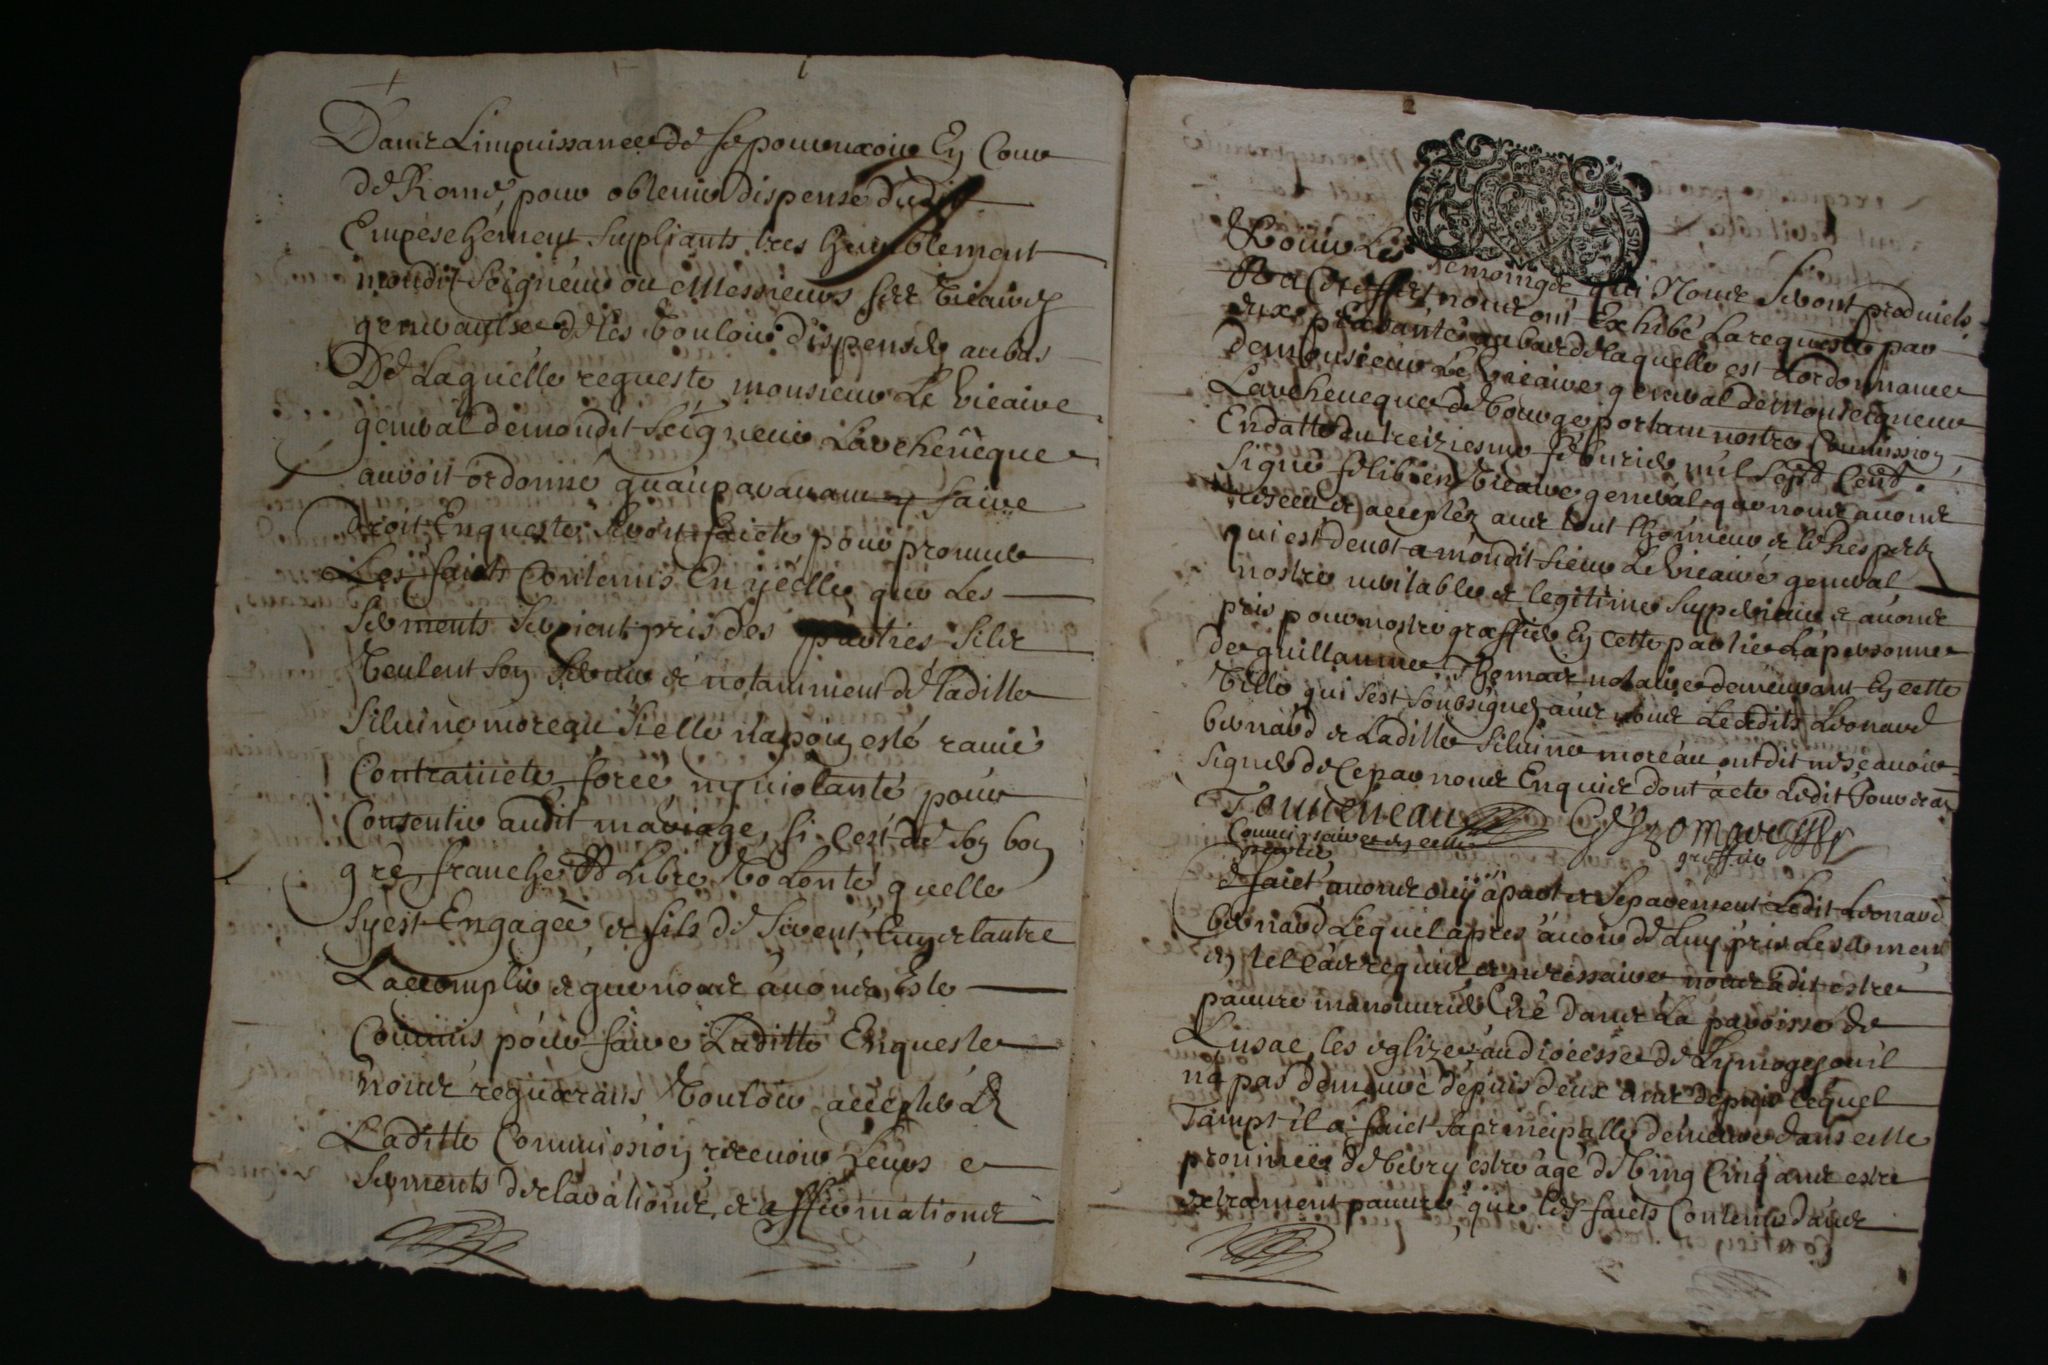 1
Dans Limpuissance de se pourvoir En Cour
de Rome, pour obtenir dispense dudit
Empeschement suppliants tres humblement
mondit Seigneur ou Messieurs ses vicaires
generaulx de les vouloir dispenser au bas
De Laquelle requeste monsieur Le vicaire
general de mondit Seigneur Larcheuêque
auroit ordonné quauparauant y faire
droit Enqueste seroit faicte pour prouuer
Les faicts Contenus En ycelle que Les
serments seroient pris des parties silz
veulent sen seruir et notamment de Laditte
Siluine moreau si elle na point esté rauie
Contraincte, forcé, ny violanté pour
Consentir audit mariage, si cest de son bon
gré franche Et Libre volonté quelle
sy est Engagée et silz desirent Lun et lautre
Laccomplir et que nous auons Este
Commis pour faire Laditte Enqueste
nous requerans vouloir accepter
Laditte Commission receuoir Leurs
serments declarations et affirmations
2
Et ouir Les temoings qui Nous seront produicts
Et a Cet effet nous ont Exhibé La requeste par
eux presantée au bas de laquelle est Lordonnance
de monsieur Le vicaire general de monseigneur
Larcheueque de bourges portant nostre Commission
En datte du treiziesme feburier mil sept Cent
signé felibien vicaire general, que nous auons
receu et acceptez auec tout Lhonneur et le respect
qui est deub a mondit sieur Le vicaire general
nostre veritable et legitime supperieur et auons
pris pour nostre greffier En cette partie La personne
de guillaume Thomas notaire demeurant En cette
ville qui sest soubsignez auec nous Lesdits Leonard
bernard et Laditte Siluine moreau ont dit ne scauoir
signer de Ce par nous Enquis dont acte Ledit Jour et an
Tourneneau G Thomas
Commissaire en cette
partie greffier
Et faict auons ouy a part et separement Ledit Leonard
bernard Lequel apres auoir de Luy pris Le serment
En tel Cas requis et necessaire nous a dit estre
pauure manouurier né dans La paroisse de
Lusac les eglizes au diocesse de Lymoges ou il
na pas demeuré depuis deux ans depuis Lequel
Tampt il a faict sa principalle demeure dans cette
prouince de berry estre agé de vingt Cinq ans estre
extrament pauure que les faicts Contenus dans